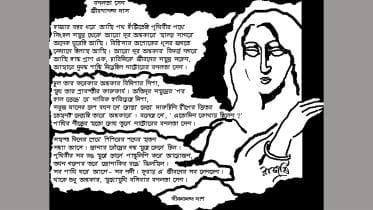 বনলতা সেন
জীবনানন্দ দাশ
হাজার বছর ধরে আমি পথ হাঁটিতেছি পৃথিবীর পথে,
সিংহল সমুদ্র থেকে আরো দূর অন্ধকারে মালয় সাগরে
অনেক ঘুরেছি আমি। বিম্বিসার অশোকের ধূসর জগতে
সেখানে ছিলাম আমি। আরো দূর অন্ধকার বিদর্ভ নগরে
আমি ক্লান্ত প্রাণ এক, চারিদিকে জীবনের সমুদ্র সফেন,
আমারে দুদণ্ড শান্তি দিয়েছিল নাটোরের বনলতা সেন।
চুল তার কবেকার অন্ধকার বিদিশার নিশা,
মুখ তার শ্রাবস্তীর কারুকার্য। অতিদূর সমুদ্রের 'পর
হাল ভেঙে যে নাবিক হারায়েছে দিশা,
সবুজ ঘাসের দেশ যখন সে চোখে দেখে দারুচিনি দ্বীপের ভিতর
তেমনই দেখেছি তারে অন্ধকারে। বলেছে সে, 'এতোদিন কোথায় ছিলেন?'
পাখির নীড়ের মতো চোখ তুলে নাটোরের বনলতা সেন।
সমস্ত দিনের শেষে শিশিরের শব্দের মতন
সন্ধ্যা আসে। ডানার রৌদ্রের গন্ধ মুছে ফেলে চিল।
পৃথিবীর সব রঙ মুছে গেলে পাণ্ডুলিপি করে আয়োজন,
তখন গল্পের তরে জোনাকির রঙে ঝিলমিল।
সব পাখি ঘরে আসে - সব নদী। ফুরায় এ জীবনের সব লেনদেন।
থাকে শুধু অন্ধকার, মুখোমুখি বসিবার বনলতা সেন।
জীবনানন্দ দাশ